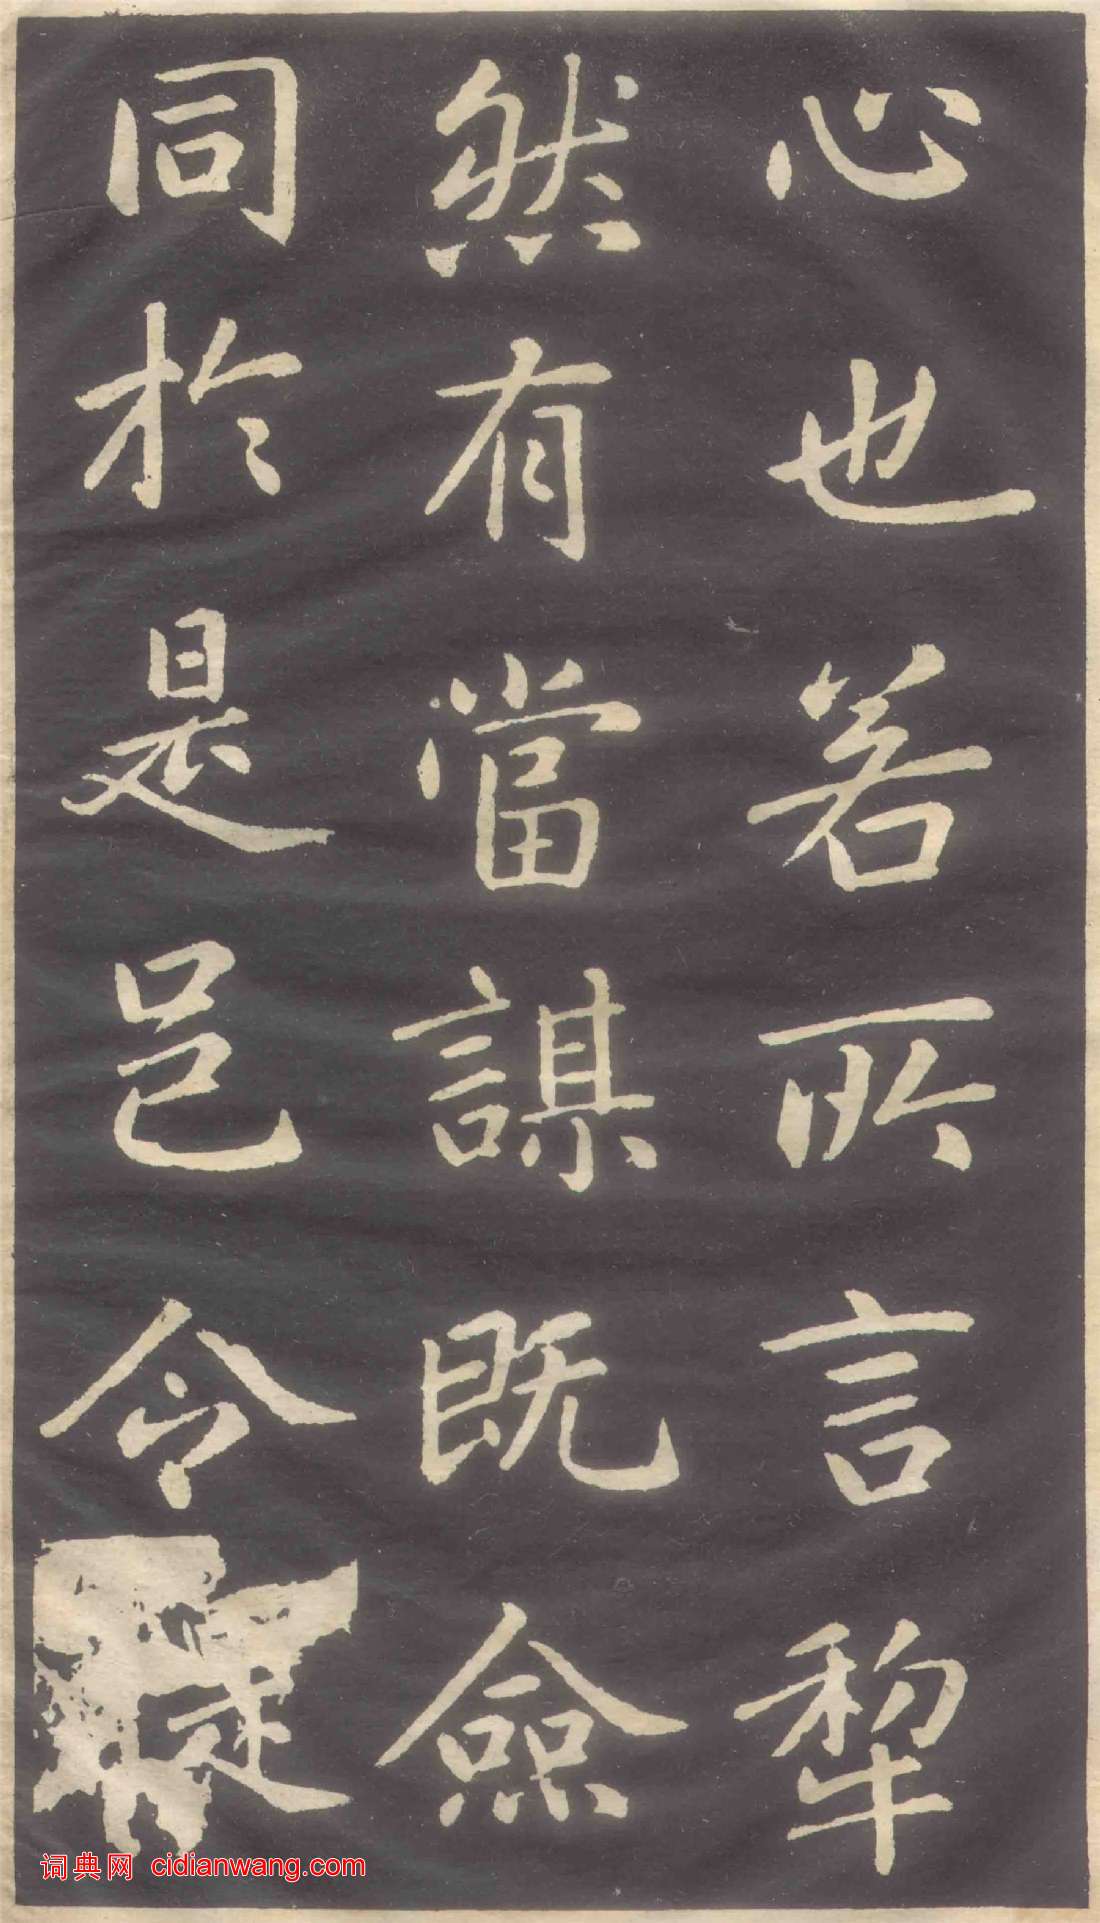 心也若所言犂
然有當謀既僉
同於是邑令
词典网 cidianwang.com